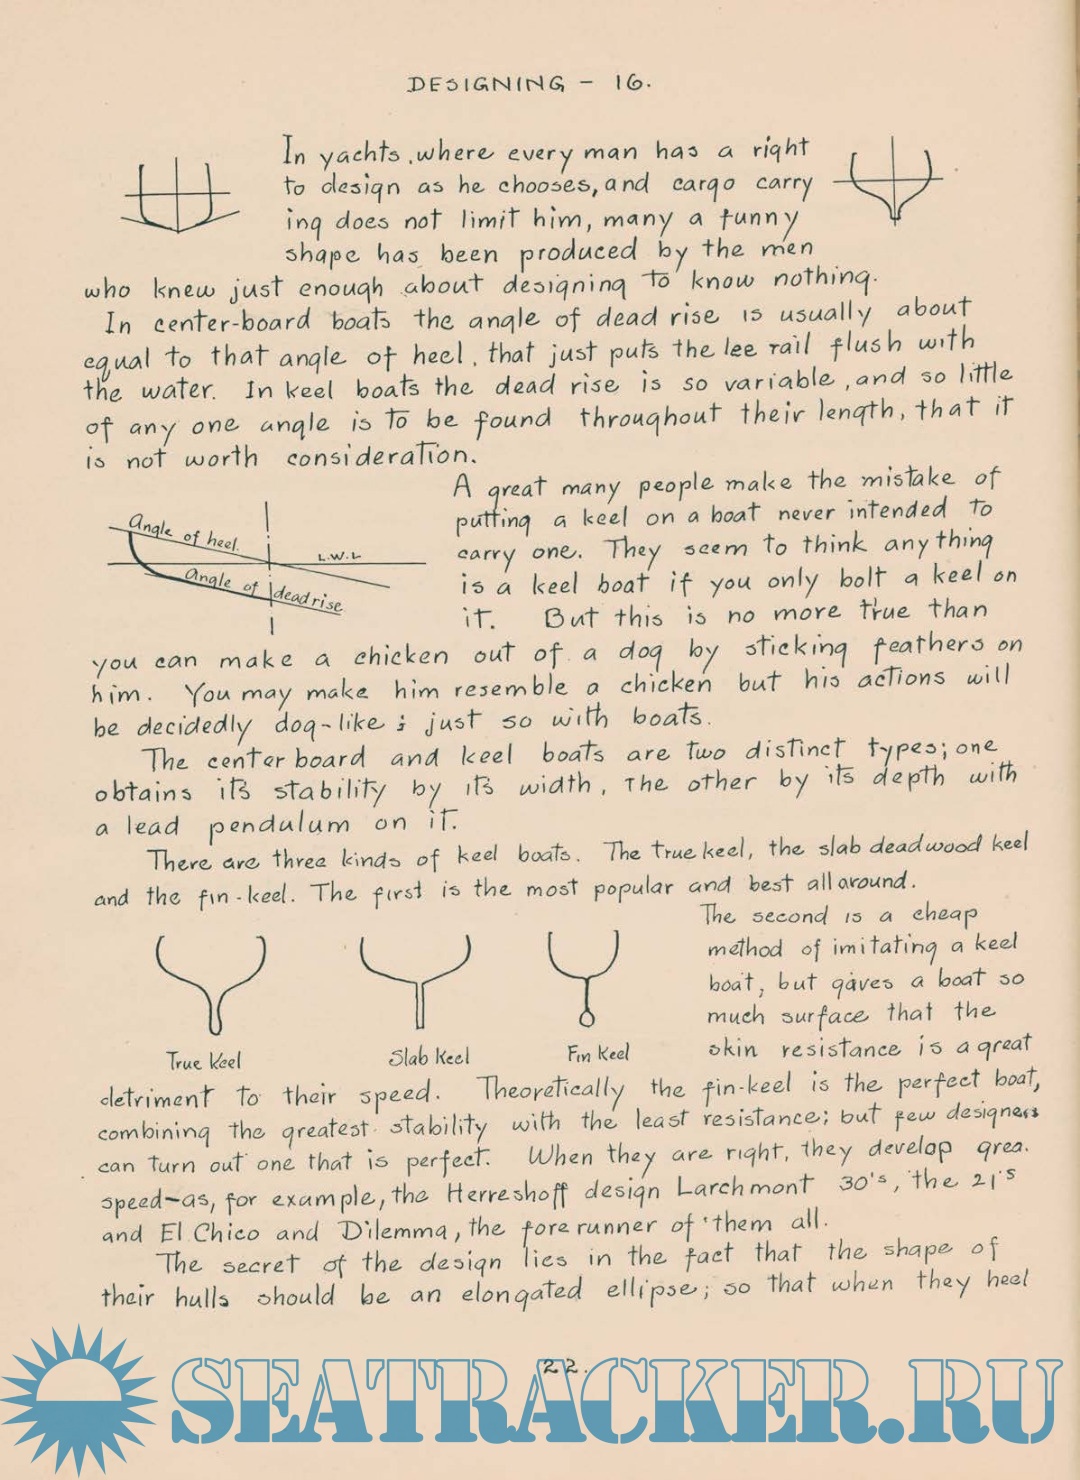 DESIGNING - 16.
In yachts, where every man has a right
to design as he chooses, and cargo carry
ing does not limit him, many a funny
shape has been produced by the men
who knew just enough about designing to know nothing.
In center-board boats the angle of dead rise is usually about
equal to that angle of heel, that just puts the lee rail flush with
the water. In keel boats the dead rise is so variable, and so little
of any one angle is to be found throughout their length, that it
is not worth consideration.
Angle of heel.
L.W.L
Angle of dead rise
A great many people make the mistake of
putting a keel on a boat never intended to
carry one. They seem to think any thing
is a keel boat if you only bolt a keel on
it. But this is no more true than
you can make a chicken out of a dog by sticking feathers on
him. You may make him resemble a chicken but his actions will
be decidedly dog-like; just so with boats.
The center board and keel boats are two distinct types; one
obtains it's stability by it's width, the other by it's depth with
a lead pendulum on it.
There are three kinds of keel boats. The true keel, the slab deadwood keel
and the fin-keel. The first is the most popular and best all around.
The second is a cheap
method of imitating a keel
boat, but gaves a boat so
much surface that the
skin resistance is a great
True Keel
Slab Keel
Fin Keel
detriment to their speed. Theoretically the fin-keel is the perfect boat,
combining the greatest stability with the least resistance; but few designers
can turn out one that is perfect. When they are right, they develop grea.
speed-as, for example, the Herreshoff design Larchmont 30's, the 21's
and El Chico and Dilemma, the fore runner of them all.
The secret of the design lies in the fact that the shape of
their hulls should be an elongated ellipse; so that when they heel
22.
SEATRACKER.RU